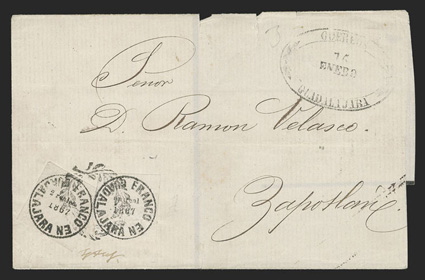 ENERO
GUADALAJARA
Señor
D. Ramon Velasco.
Zapotlan
FRANCO EN GUADALAJARA
1867
FRANCO EN GUADALAJARA
1867